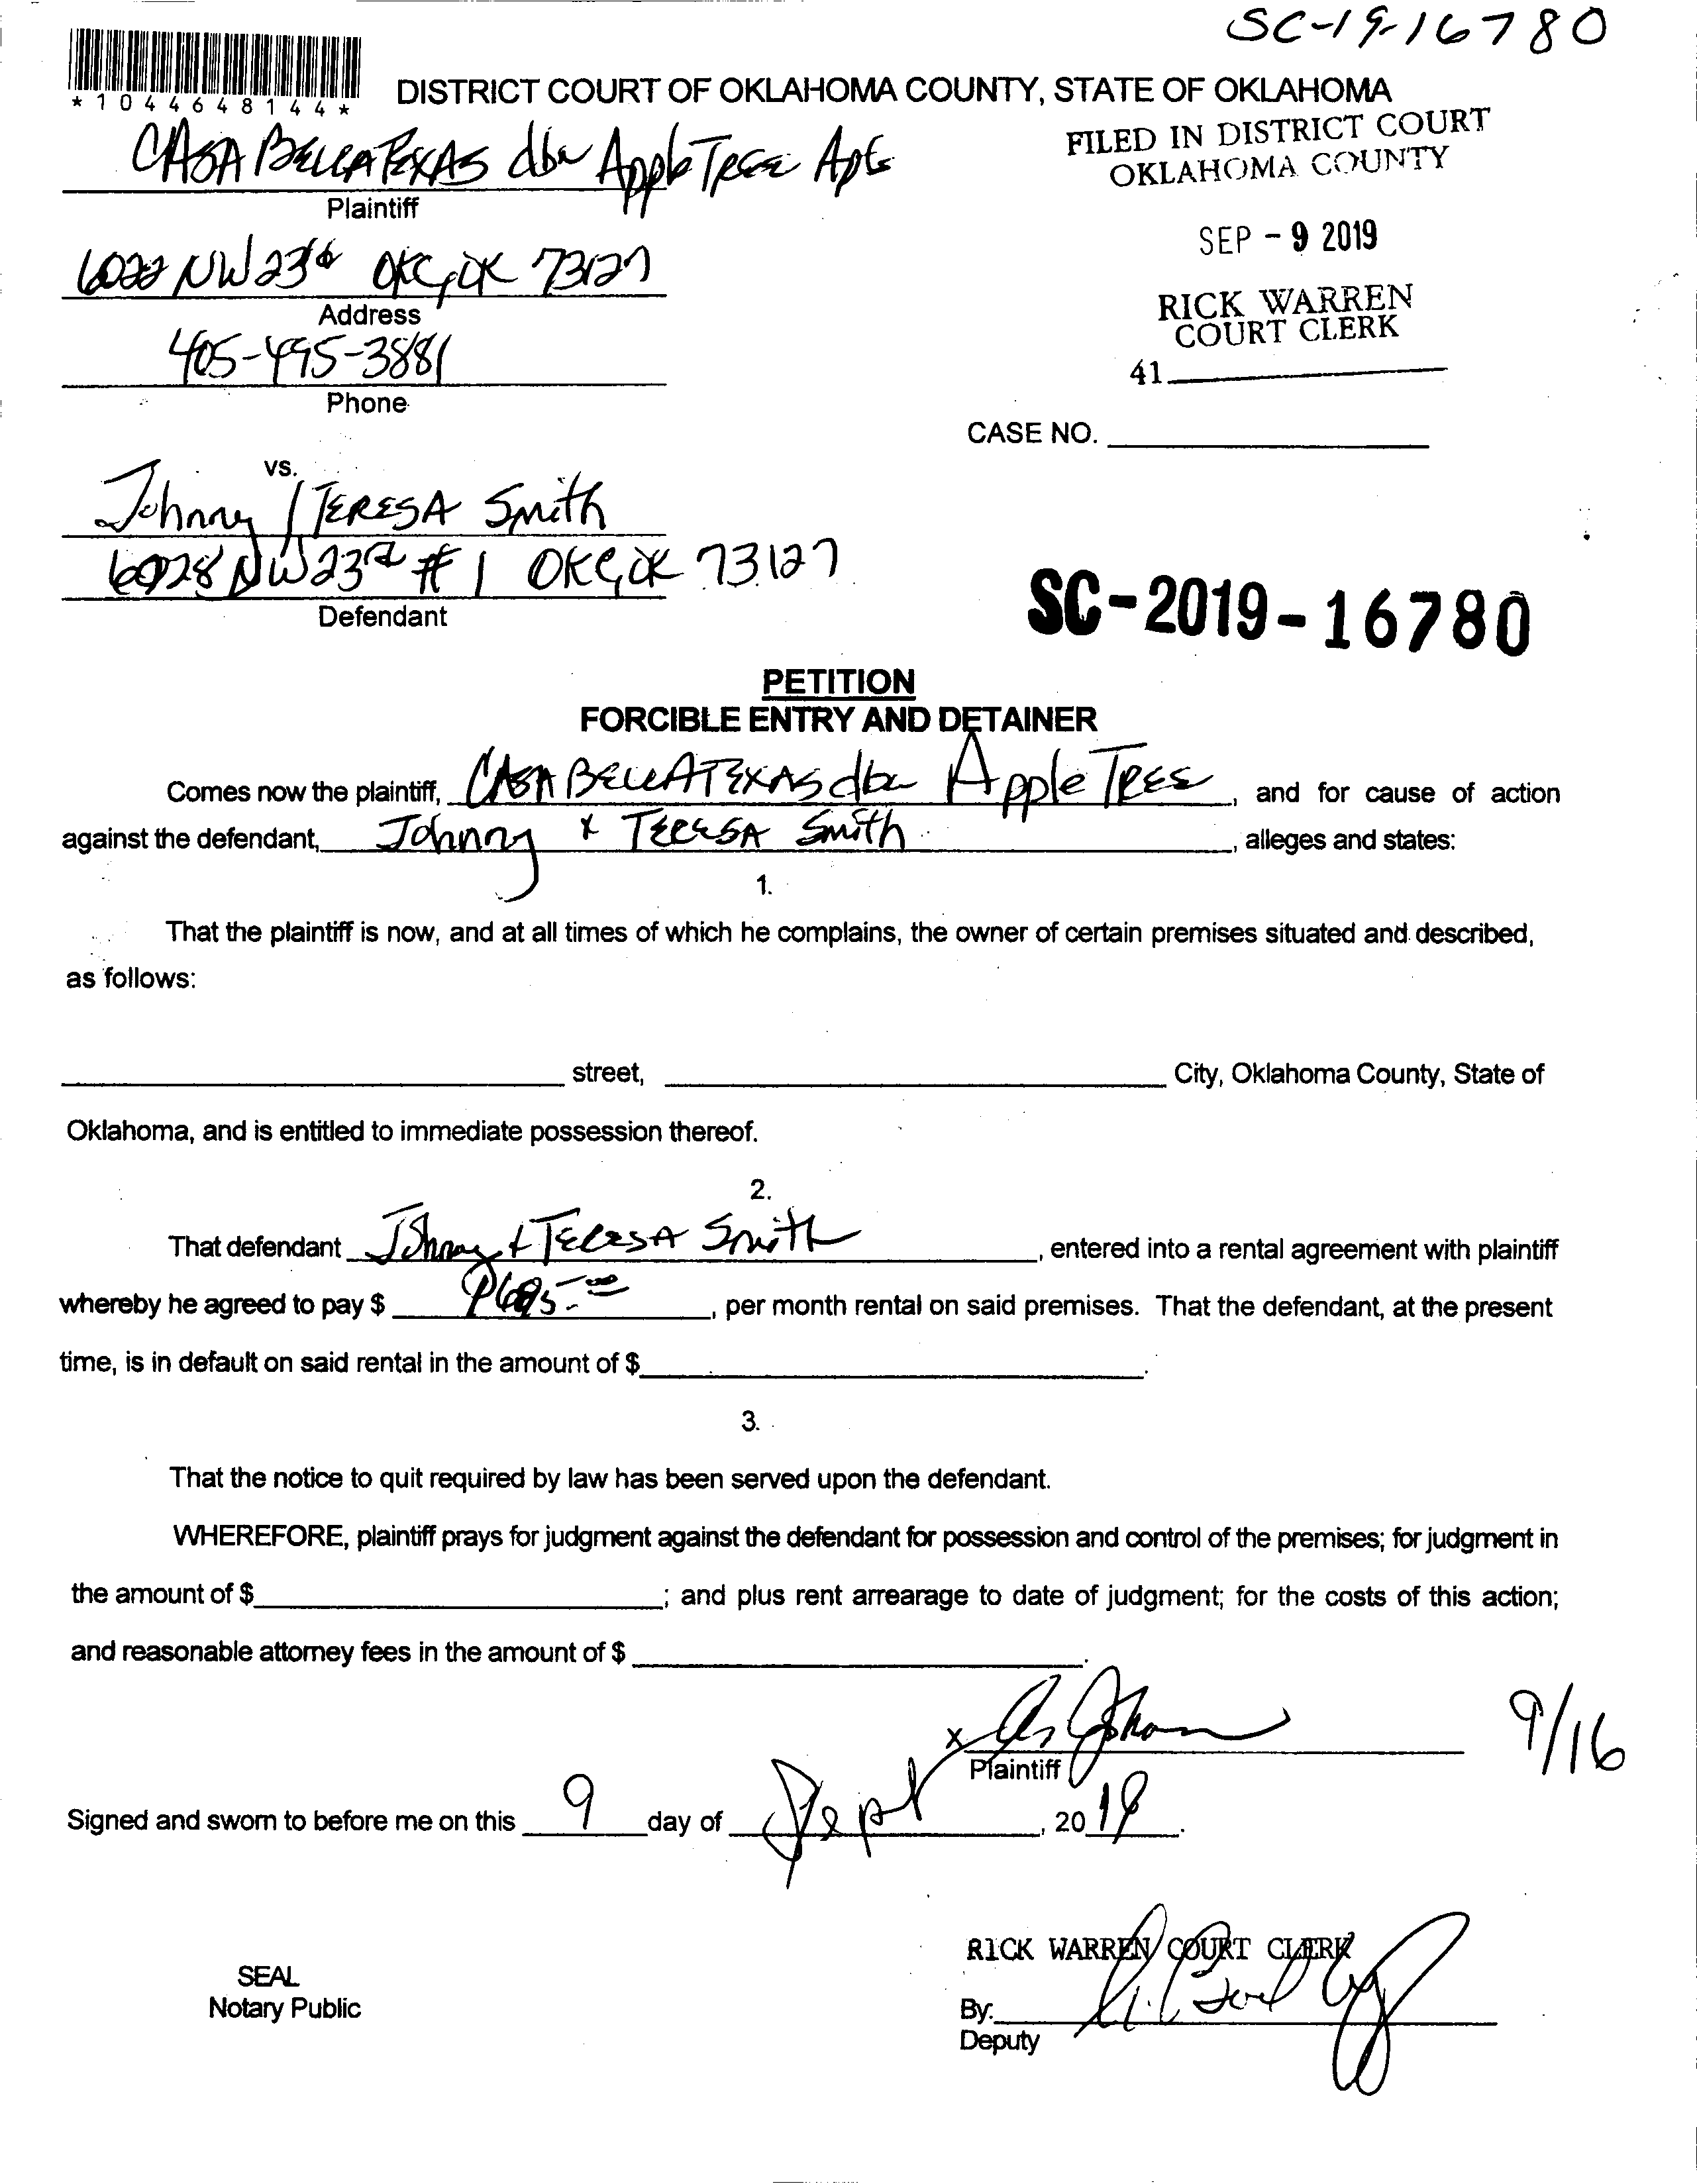 SC-19-16780
*1044648144*
DISTRICT COURT OF OKLAHOMA COUNTY, STATE OF OKLAHOMA
CASA BELLA TEXAS dba Apple Tree Apts
Plaintiff
FILED IN DISTRICT COURT
OKLAHOMA COUNTY
SEP - 9 2019
RICK WARREN
COURT CLERK
41
6022 NW 23rd OKC, OK 73127
Address
405-495-3881
Phone
CASE NO.
vs.
Johnny / TERESA Smith
6028 NW 23rd # 1 OKC, OK 73127
Defendant
SC-2019-16780
PETITION
FORCIBLE ENTRY AND DETAINER
Comes now the plaintiff, CASA BELLA TEXAS dba Apple TREE, and for cause of action
against the defendant, Johnny & TERESA Smith, alleges and states:
1.
That the plaintiff is now, and at all times of which he complains, the owner of certain premises situated and described,
as follows:
street, City, Oklahoma County, State of
Oklahoma, and is entitled to immediate possession thereof.
2.
That defendant Johnny & TERESA Smith, entered into a rental agreement with plaintiff
whereby he agreed to pay $, per month rental on said premises. That the defendant, at the present
time, is in default on said rental in the amount of $.
3.
That the notice to quit required by law has been served upon the defendant.
WHEREFORE, plaintiff prays for judgment against the defendant for possession and control of the premises; for judgment in
the amount of $; and plus rent arrearage to date of judgment; for the costs of this action;
and reasonable attorney fees in the amount of $.
x
Plaintiff
9/16
Signed and sworn to before me on this 9 day of Sept, 2019.
RICK WARREN COURT CLERK
SEAL
Notary Public
By:
Deputy